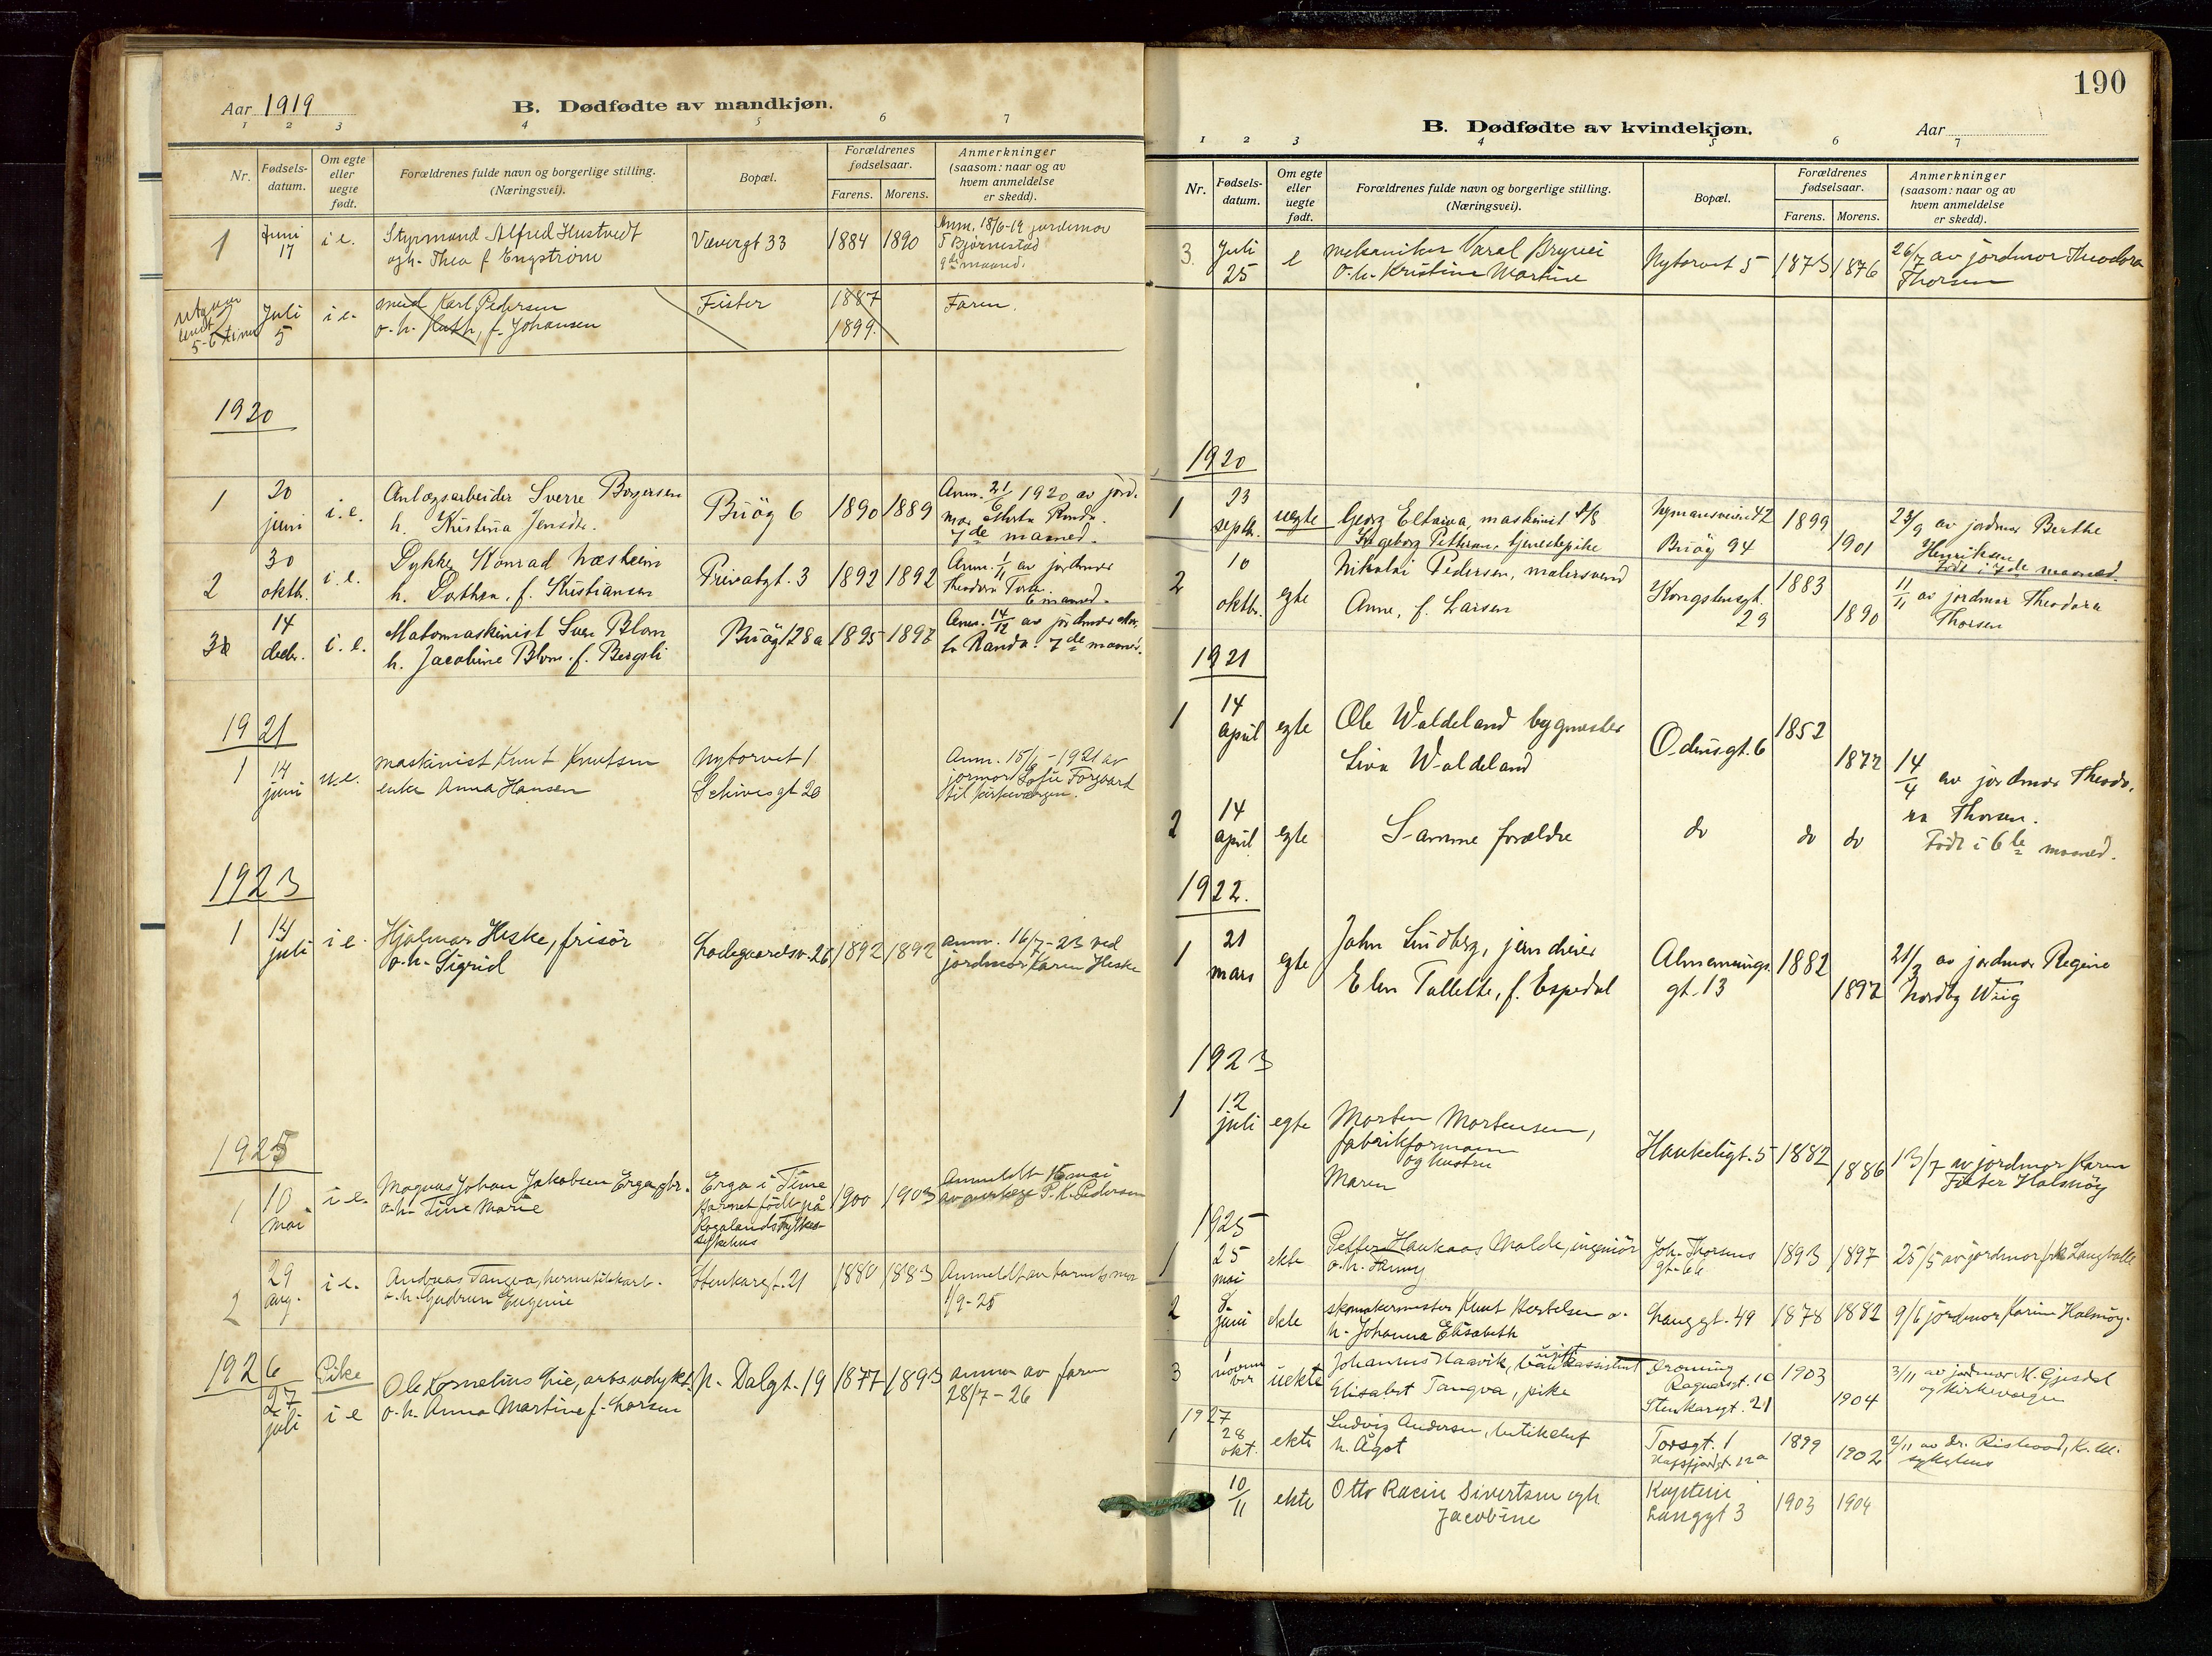 Aar 1919
B. Dødfødte av mandkjøn.
1 2 3 4 5 6 7
Nr.
Fødsels-
datum.
Om egte
eller
uegte
født.
Forældrenes fulde navn og borgerlige stilling.
(Næringsvei).
Bopæl.
Forældrenes
fødselsaar.
Farens. Morens.
Anmerkninger
(saasom: naar og av
hvem anmeldelse
er skedd).
1 Juni 17 i e. Styrmand Alfred Hustvedt
og h. Thea f Engstrøm
Vævergt 33 1884 1890
Anm. 18/6-19 jordemor
T Bjørnestad
9de maaned.
5-6 timer
Juli 5 i e. Karl Pedersen
o. h. Ruth, f. Johansen
Fister 1887
1899.
Faren.
1920
1 20 juni i. e. Anlægsarbeider Sverre Borgersen
h. Kristina Jensdtr.
Buög 6 1890 1889
Anm. 21/6 1920 av jord-
mor Marta Randa.
7de maaned.
2 30 oktb. i. e. Dykker Konrad Næsheim
h. Dorthea, f. Kristiansen
Privatgt. 3 1892 1892
Anm. 1/11 av jordmor
Theodora Thors.
6 maaned.
3 14 decbr. i. e. Motormaskinist Sven Blom
h. Jacobine Blom f. Bergsli
Buög 128a 1895 1897
Anm. 14/12 av jordmor Mar-
ta Randa. 7de maaned.
1921
1 14 juni u.e. maskinist Knut Knutsen
enke Anna Hansen
Nytorvet 1
Schivesgt 20
Anm. 15/6-1921 av
jormor Sofie Forgaard
til kirkevergen.
1923
1 14 juli i e. Hjalmar Heske, frisör
o. h. Sigrid
Ladegaardsv. 26 1892 1892
anm. 16/7-23 ved
jordmor Karen Heske
1925
1 10 mai i e. Magnus Johan Jakobsen Erga, gbr.
o. h. Tine Marie
Erga i Time
Barnet født på
Rogalands fylkes-
sykehus
1900 1903
Anmeldt 16 mai
av overlæge P. K. Pedersen
2 29 aug. i e. Andreas Tangva, hermetikkarb.
o. h. Gudrun Eugenie
Stenkargt. 21 1880 1883
Anmeldt av barnets mor
1/9-25
1926
Pike
27 juli i e Ole Kornelius Lie, arbs.udykt.
o. h. Anna Martine f. Larsen
N. Dalgt. 19 1877 1893
anm. av faren
28/7-26
190
B. Dødfødte av kvindekjøn.
Aar
1 2 3 4 5 6 7
Nr.
Fødsels-
datum.
Om egte
eller
uegte
født.
Forældrenes fulde navn og borgerlige stilling.
(Næringsvei).
Bopæl.
Forældrenes
fødselsaar.
Farens. Morens.
Anmerkninger
(saasom: naar og av
hvem anmeldelse
er skedd).
3. Juli 25 e mekaniker Varal Bryne
o. h. Kristine Martine
Nytorvet 5 1873 1876
26/7 av jordmor Theodora
Thorsen
1920
1 23 septb. uegte Georg Eltarva, maskinist
Ingeborg Pettersen, tjenestepike
Nymansveien 42 1899
Buög 94 1901
23/9 av jordmor Berthe
Henriksen
Født i 7de maaned.
2 10 oktb. egte Nikolai Pedersen, malersvend
Anne, f. Larsen
Kongstensgt. 29 1883
1890
11/11 av jordmor Theodora
Thorsen
1921
1 14 april egte Ole Waldeland bygmester
Lina Waldeland
Odinsgt. 6 1852
1872
14/4 av jordmor Theodo-
ra Thorsen.
2 14 april egte Samme forældre
do do do
Født i 6te maaned.
1922.
1 21 mars egte John Lindberg, jerndreier
Elen Tallette, f. Espedal
Almennings-
gt. 13
1882
1892
21/3 av jordmor Regine
Nordby Wiig
1923
1 12 juli egte Morten Mortensen,
fabrikformann
og hustru
Maren
Haukeligt. 5 1882
1886
13/7 av jordmor Karen
Fister Halsnöy
1925
1 25 mai ekte Petter Haukaas Malde, ingeniør
o. h. Fanny
Joh. Thorsens
gt. 66
1893 1897
25/5 av jordmor frk Langballe
2 8 juni ekte skomakermester Knut Bertelsen o.
h. Johanna Elisabeth
Langgt. 49 1878 1882
9/6 jordmor Karin Halsnöy.
3 1 november uekte Johannes Haavik, ugift bankassistent
Elisabet Tangva, pike
Dronning
Ragnasgt. 10
Stenkargt. 21
1903
1904
3/11 av jordmor M. Gjesdal
og kirkevergen
1927
1 28 okt. ekte Ludvig Andersen, butikchef
h. Ågot
Torsgt. 1
Hafsfjordgt. 12a
1899 1902
2/11 av dr. Risteood, K. M.
sykehus
10/11 ekte Otto Racin Sivertsen og h.
Jacobine
Kaptein
Langgt 3
1903 1904